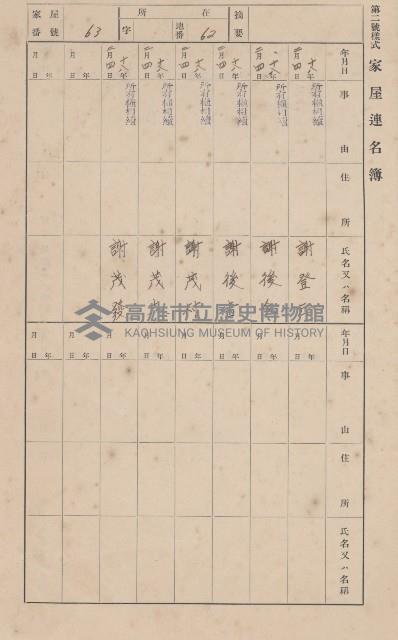 第二號樣式 家屋連名簿
摘要
所在
地番 62
字
家屋番號 63
年月日 事由 住所 氏名又ハ名稱
十六年 月四日 所有權相續 謝登
十六年 月四日 所有權相續 謝後
十六年 月四日 所有權相續 謝後
十六年 月四日 所有權相續 謝茂
十六年 月四日 所有權相續 謝茂
十六年 月四日 所有權相續 謝茂發
年 月 日
年 月 日
年月日 事由 住所 氏名又ハ名稱
年 月 日
年 月 日
年 月 日
年 月 日
年 月 日
年 月 日
年 月 日
年 月 日
高雄市立歷史博物館
KAOHSIUNG MUSEUM OF HISTORY